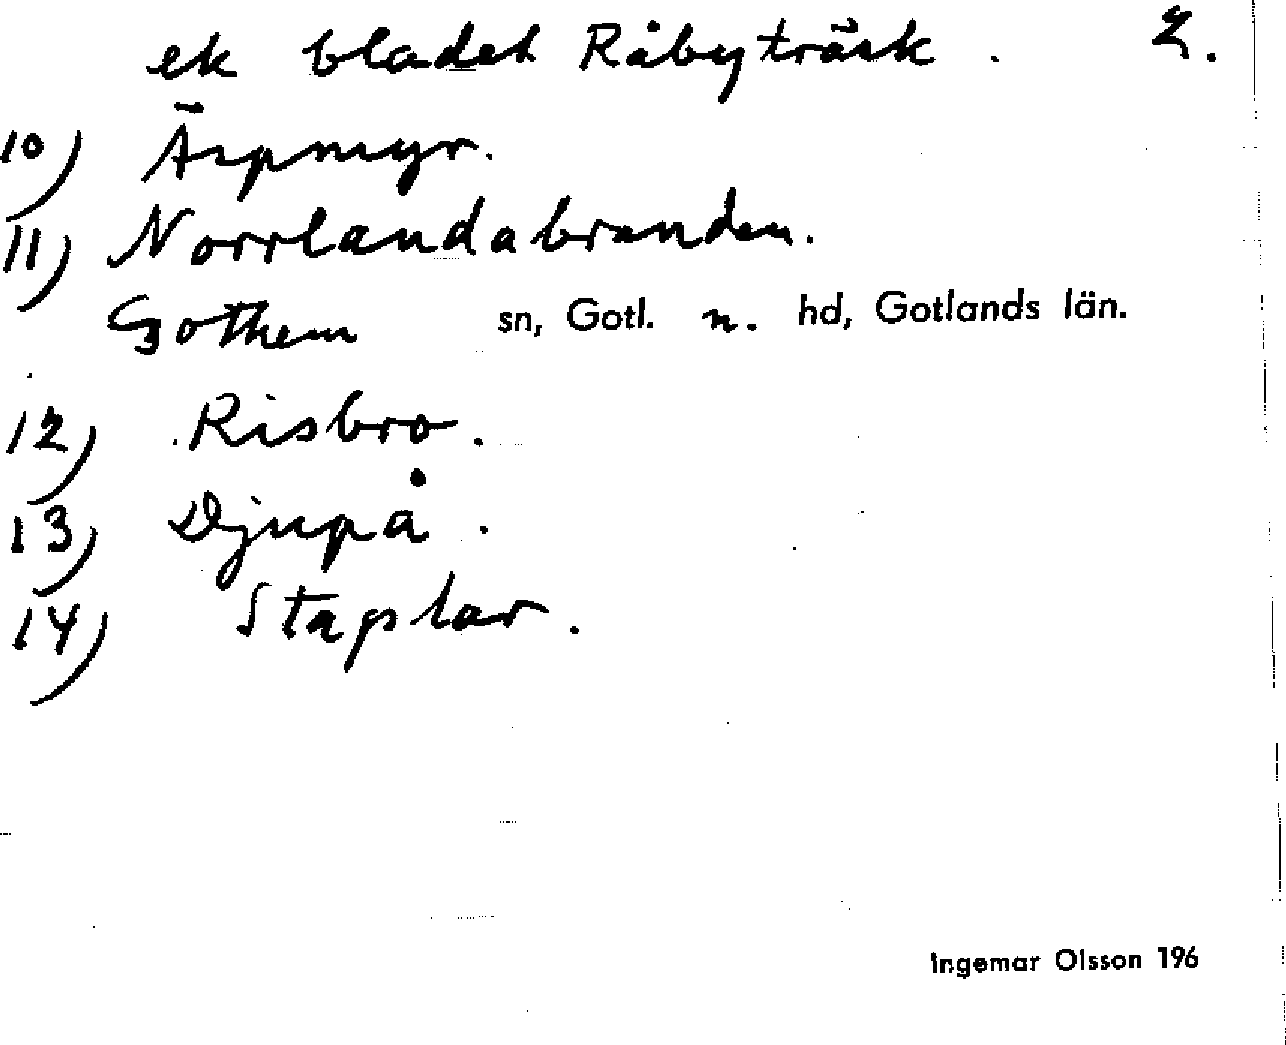 ek bladet Råbyträsk. 2.
10) Ärpmyr.
11) Norrlandabranden.
Gothem sn, Gotl. n. hd, Gotlands län.
12) Risbro.
13) Djupå.
14) Staplar.
Ingemar Olsson 196